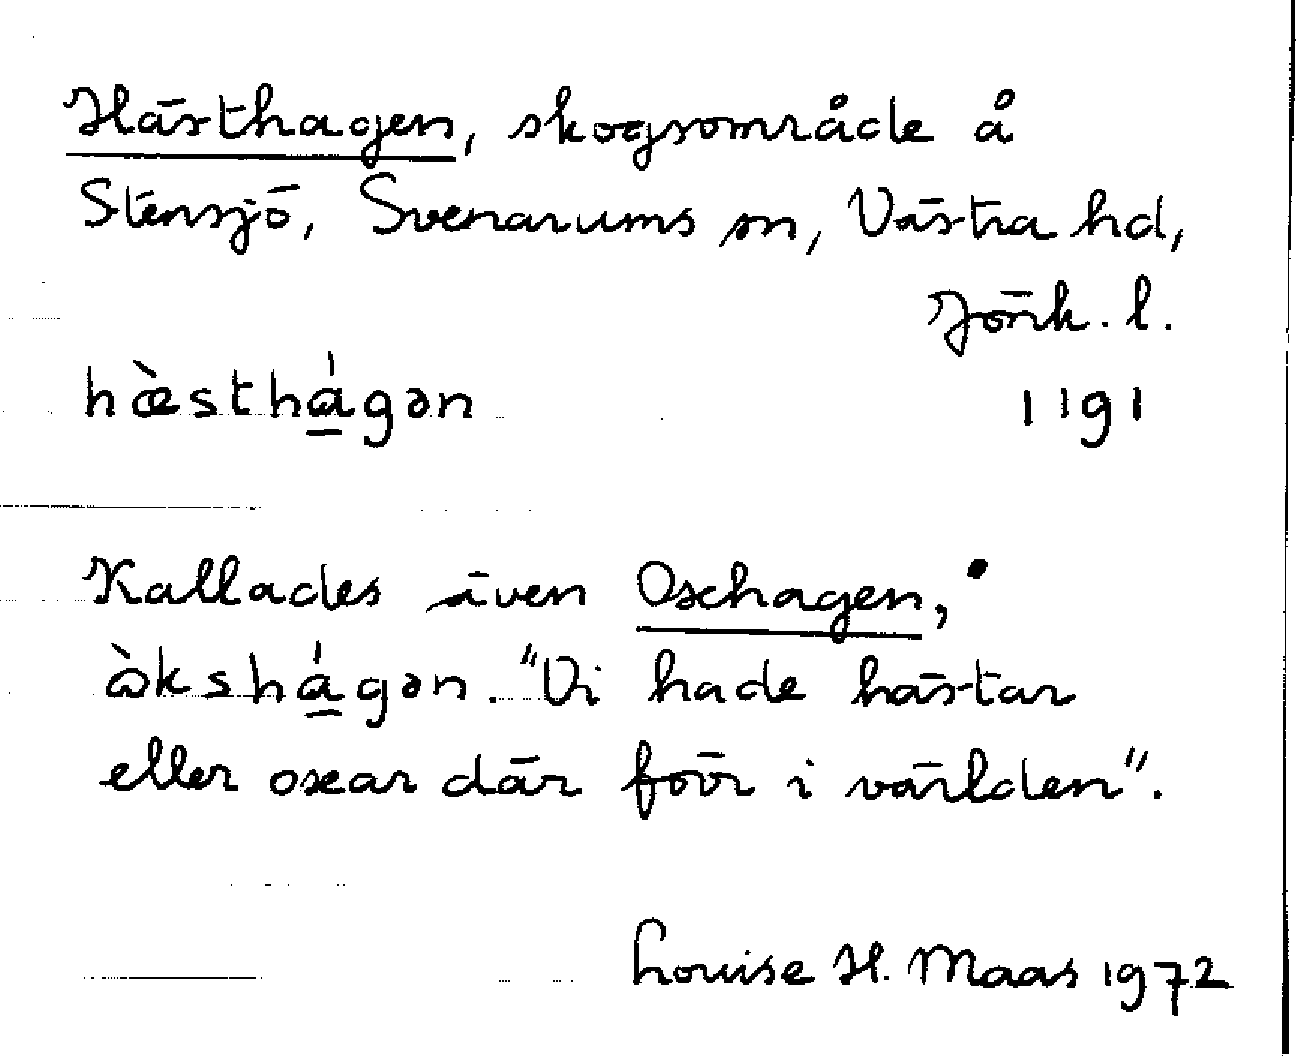 Hästhagen, skogsområde å
Stensjö, Svenarums sn, Västra hd,
Jönk. l.
hæ̀sthá̱gən 1191
Kallades även Oxhagen,
àkshá̱gən. "Vi hade hästar
eller oxar där förr i världen".
Louise H. Maas 1972